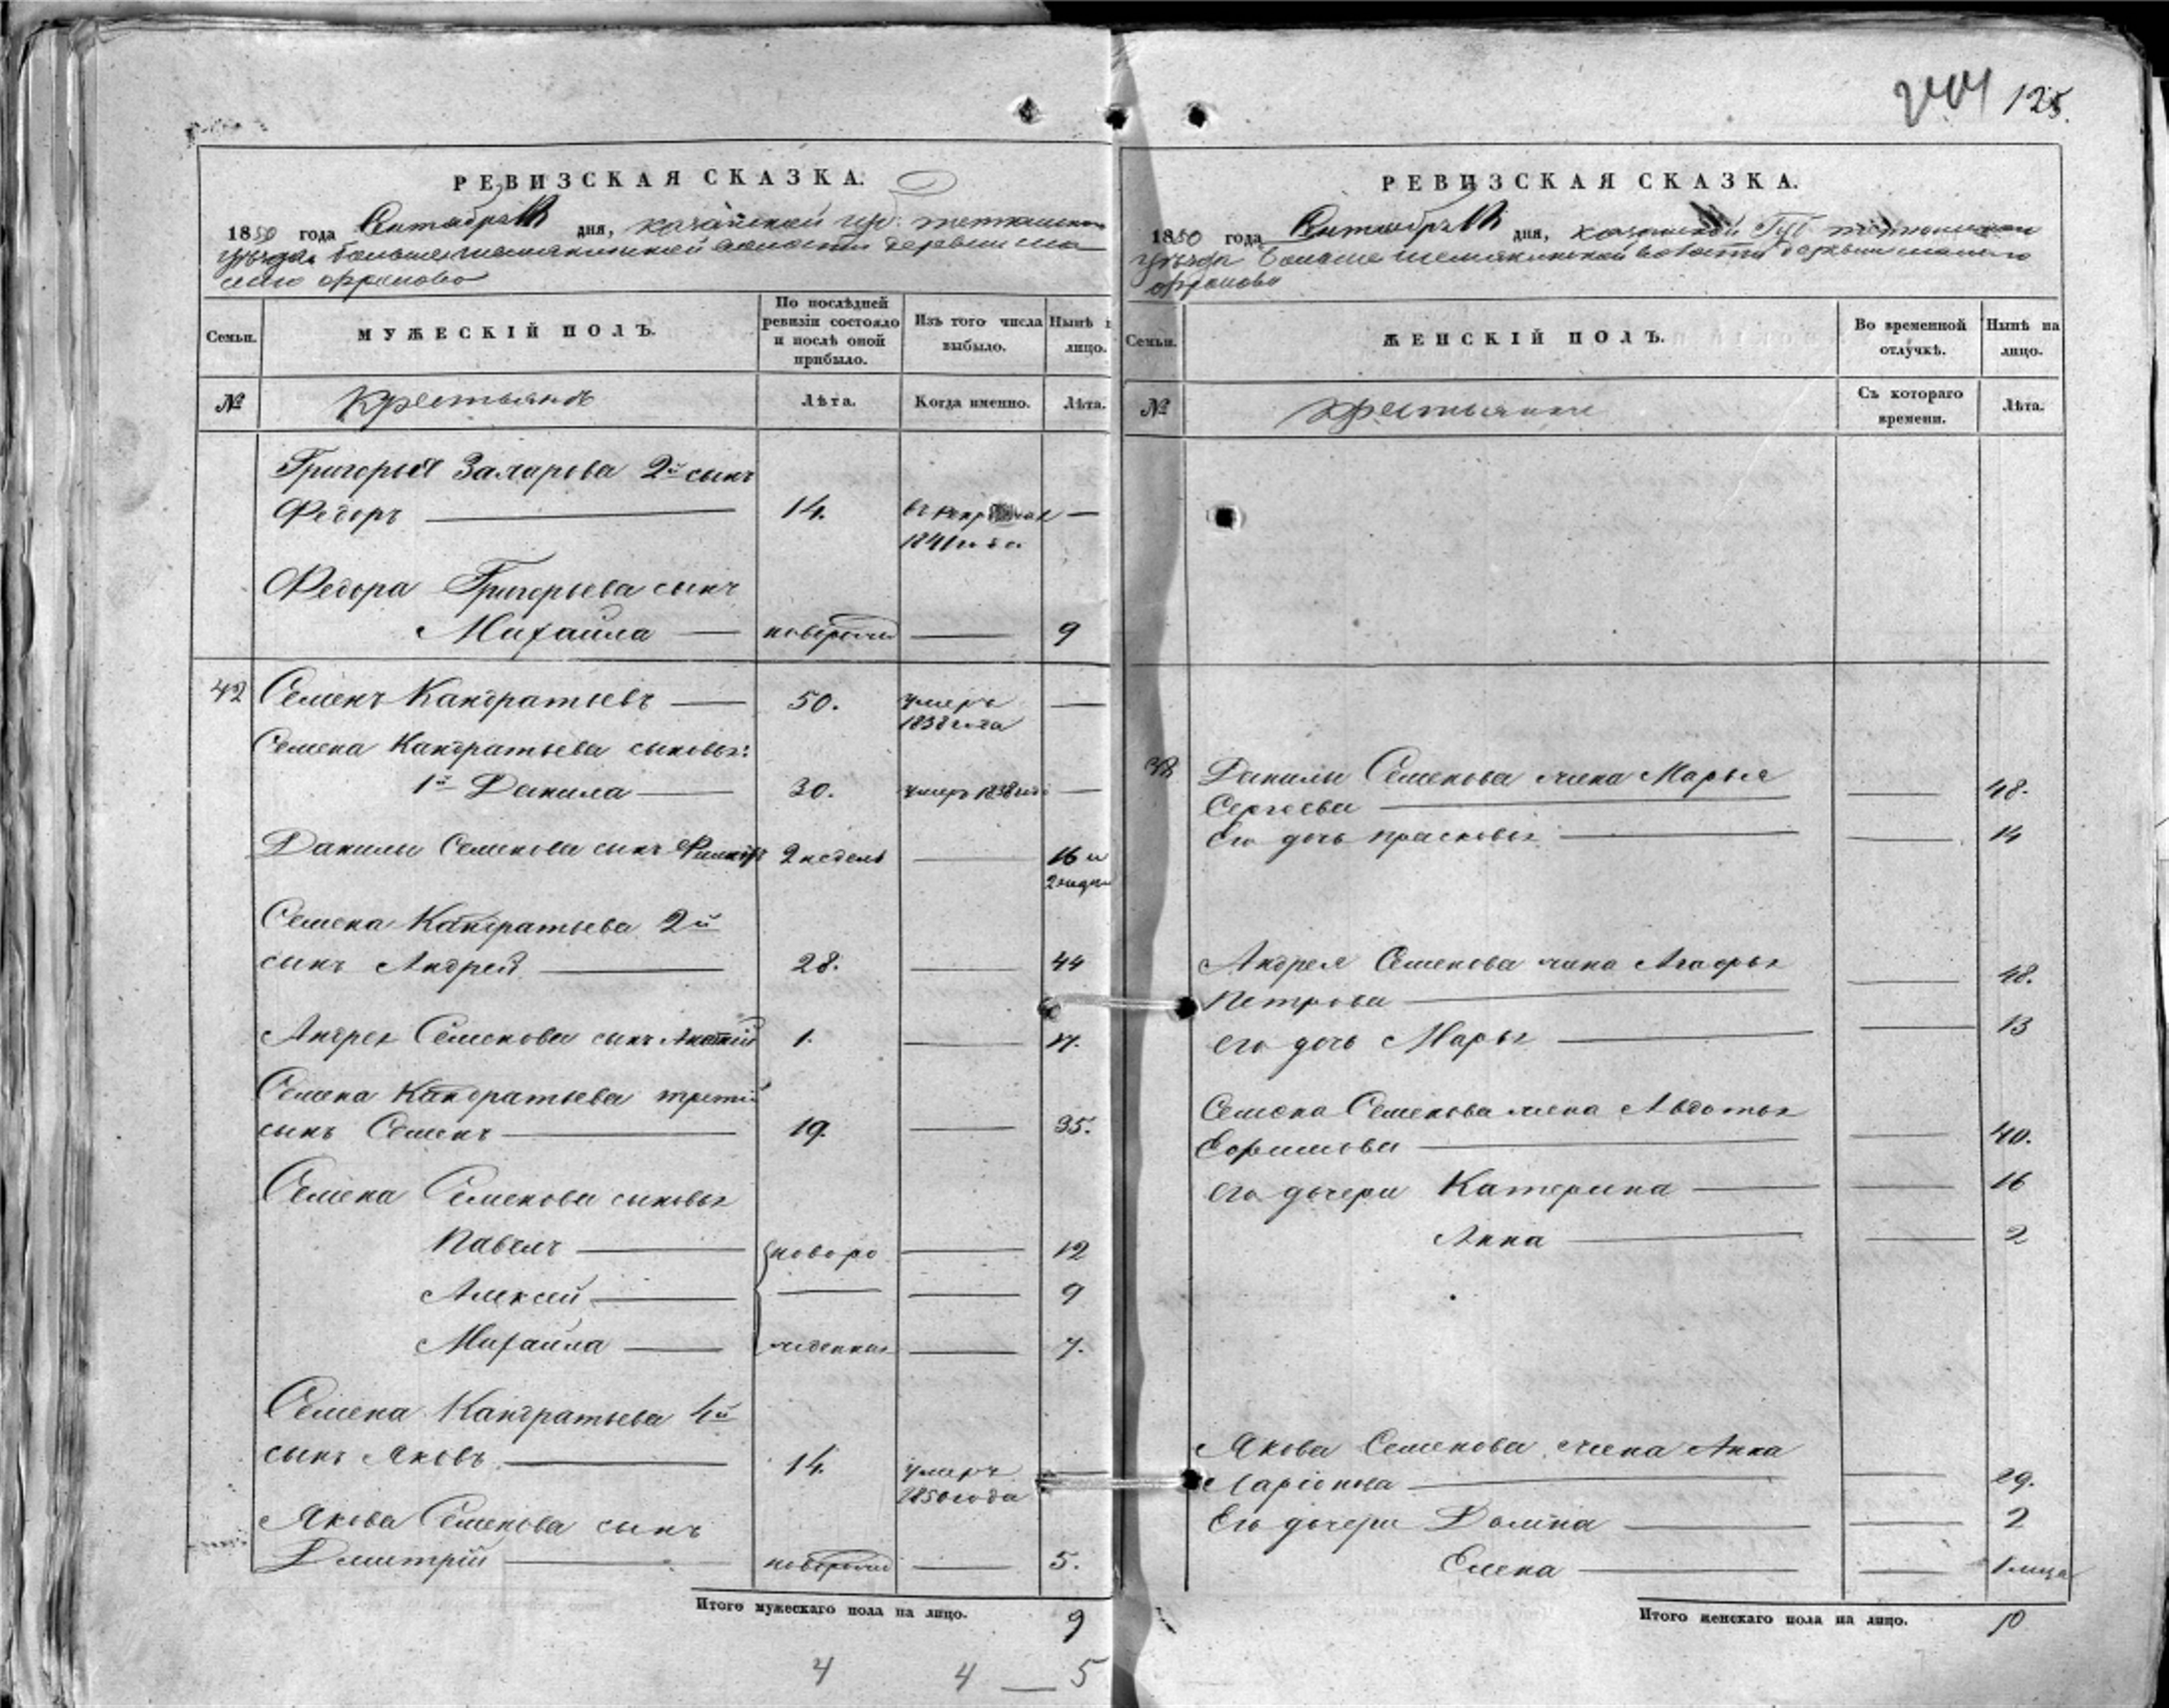 125.
РЕВИЗСКАЯ СКАЗКА.
1850 года Сентября дня, казанской губ. тетюшского
уезда большешемякинской волости деревни ма
лаго
Семьи.
МУЖЕСКІЙ ПОЛЪ.
По послѣдней ревизіи состояло и послѣ оной прибыло.
Изъ того числа выбыло.
Нынѣ лицо.
№
крестьянъ
Лѣта.
Когда именно.
Лѣта.
Григорья Захарова 2й сынъ
Федоръ — 14. —
1841 года
Федора Григорьева сынъ
Михайла — новорожд — 9
42 Семенъ Кандратьевъ — 50. умеръ 1838 года —
Семена Кандратьева сыновья:
1й Данила — 30. умеръ 1838 года —
Данилы Семенова сынъ 2 недель — 16 и
2 недели
Семена Кандратьева 2й
сынъ Андрей — 28. — 44
Андрея Семенова сынъ 1. — 17.
Семена Кандратьева третий
сынъ Семенъ — 19. — 35.
Семена Семенова сыновья
Павелъ — новоро — 12
Алексей — — — 9
Михайла — жденныя — 7.
Семена Кандратьева 4й
сынъ Яковъ — 14. умеръ
1850 года
Якова Семенова сынъ
Дмитрий — новорожд — 5.
Итого мужескаго пола на лицо. 9
4 4 — 5
РЕВИЗСКАЯ СКАЗКА.
1850 года Сентября дня, казанской Губ тетюшского
уезда больше шемякинской волости деревни малаго
Семьи.
ЖЕНСКІЙ ПОЛЪ.
Во временной отлучкѣ.
Нынѣ на лицо.
№
крестьянки
Съ котораго времени.
Лѣта.
42 Данилы Семенова жена Марья
Сергеева — — 48.
Его дочь прасковья — — 14
Андрея Семенова жена Агафья
Петрова — — 48.
его дочь Марья — — 13
Семена Семенова жена Авдотья
Ефимова — — 40.
его дочери Катерина — — 16
Анна — — 2
Якова Семенова жена Анна
Ларіонова — — 29.
Его дочери Домна — — 2
Елена — — 1 мца
Итого женскаго пола на лицо. 10